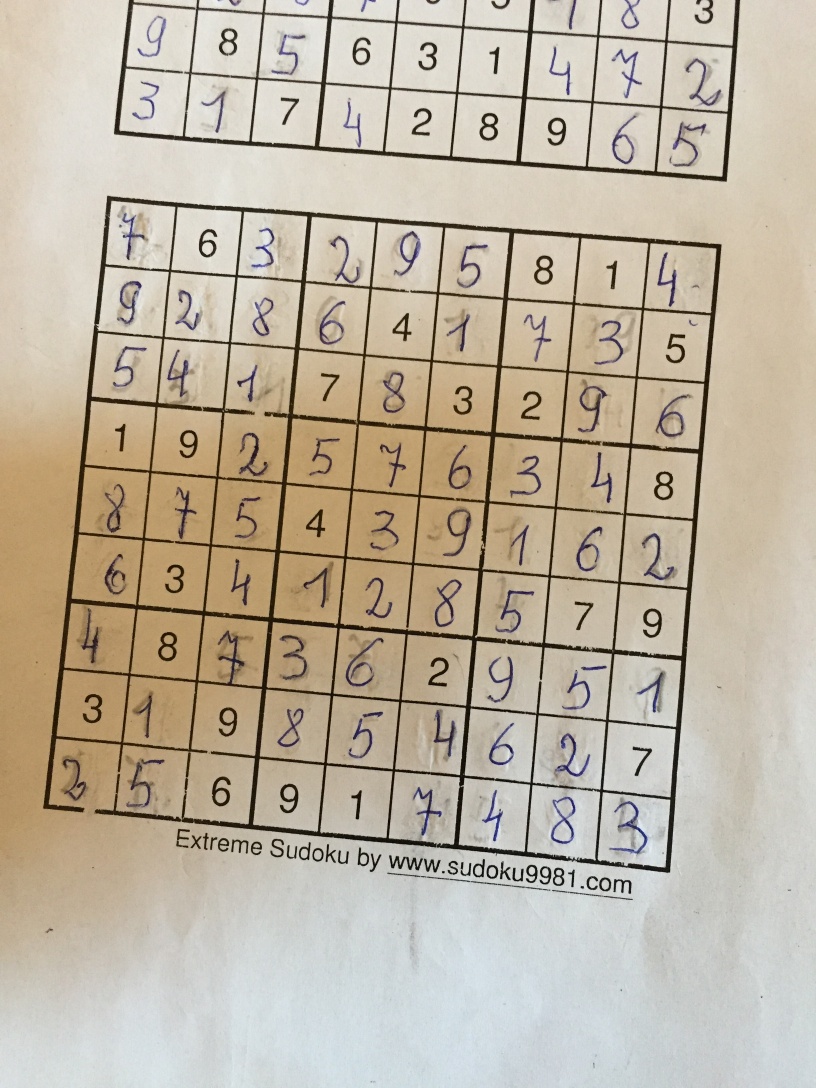 8 3
9 8 5 6 3 1 4 7 2
3 1 7 4 2 8 9 6 5
7 6 3 2 9 5 8 1 4
9 2 8 6 4 1 7 3 5
5 4 1 7 8 3 2 9 6
1 9 2 5 7 6 3 4 8
8 7 5 4 3 9 1 6 2
6 3 4 1 2 8 5 7 9
4 8 7 3 6 2 9 5 1
3 1 9 8 5 4 6 2 7
2 5 6 9 1 7 4 8 3
Extreme Sudoku by www.sudoku9981.com